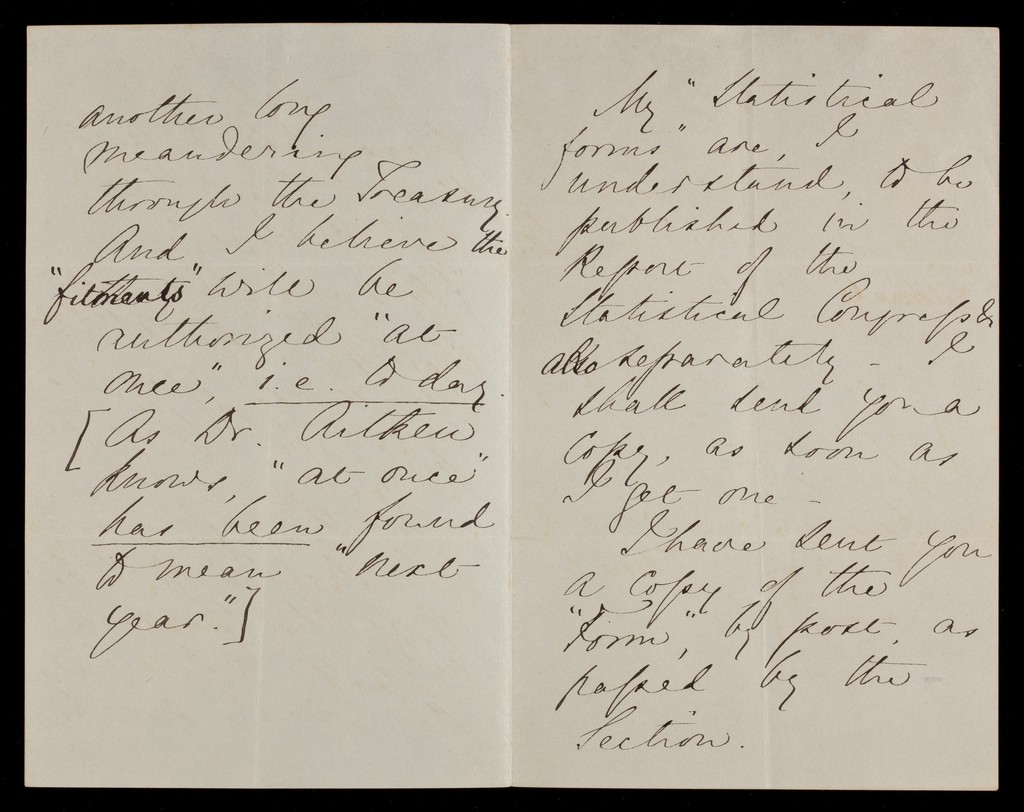 another long
meandering
through the Treasury.
And I believe the
"fitments" will be
authorized "at
once", i.e. to day.
[As Dr. Aitken
knows, "at once"
has been found
to mean "next
year."]
My "Statistical
forms" are, I
understand, to be
published in the
Report of the
Statistical Congress &
also separately - I
shall send you a
copy, as soon as
I get one -
I have sent you
a copy of the
"Form", by post, as
passed by the
Section.